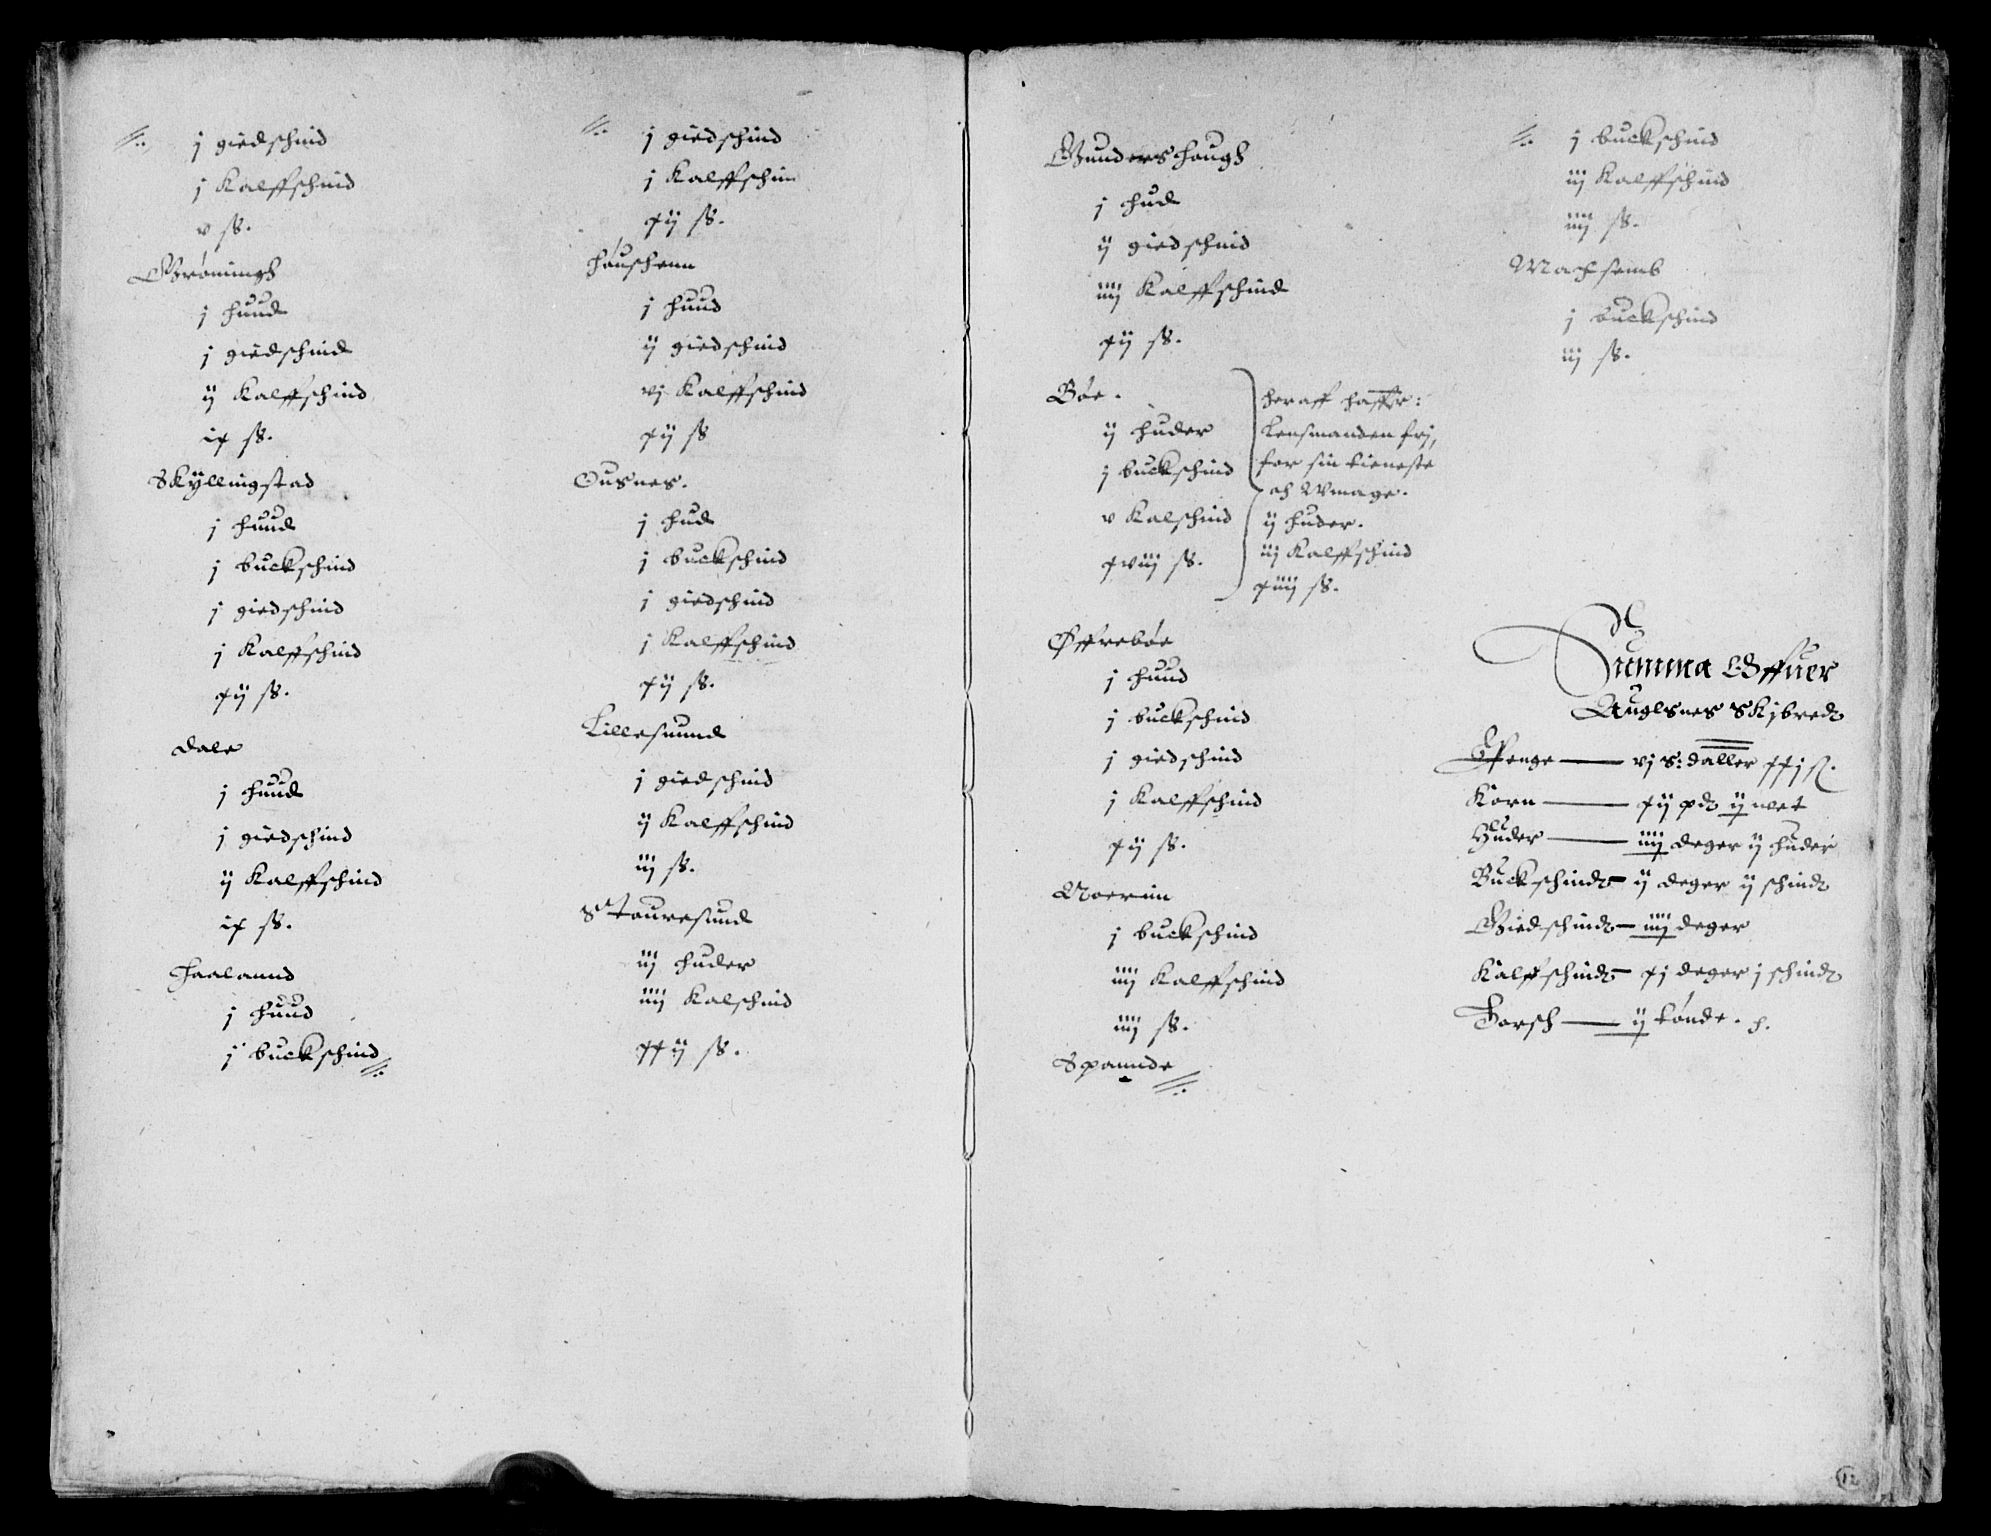 j giedschind
j Kalffschind
v ss.
Grøningh
j huud
j giedschind
ij Kalffschind
ix ss.
Skyllingstad
j huud
j buckschind
j giedschind
j Kalffschind
xij ss.
Dale
j huud
j giedschind
ij Kalffschind
ix ss.
Faalannd
j huud
j buckschind
j giedschind
j Kalffschin
xij ss.
Høuschenn
j huud
ij giedschind
vj Kalffschind
xij ss
Ousnes.
j hud
j buckschind
j giedschind
j Kalffschind
xij ss.
Lillesunnd
j giedschind
ij Kalffschind
iij ss.
Stouresund
iij huder
iiij Kalschind
xxij ss.
Gundershaugh
j hud
ij giedschind
iiij Kalffschind
xij ss.
Bøe.
ij huder
j buckschind
v Kalschind
xviij ss.
heraff haffr:
Lensmanden frj,
for sin tieneste
och Wmage.
ij huder.
iij Kalffschind
xiiij ss.
Øffrebøe
j huud
j buckschind
j giedschind
j Kalffschind
xij ss.
Noerim
j buckschind
iiij Kalffschind
iiij ss.
Spannde
j buckschind
iij Kalffschind
iiij ss.
j buckschind
iij ss.
Summa Offuer
Auglsnes Skjbred
Penge — vj s: daller xxj ss.
Korn — xij pd ij wet
Huder — iiij deger ij huder
Buckschind — ij deger ij schind
Giedschind — iiij deger
Kalffschind — xj deger j schind
Torsch — ij tønde. h.
12